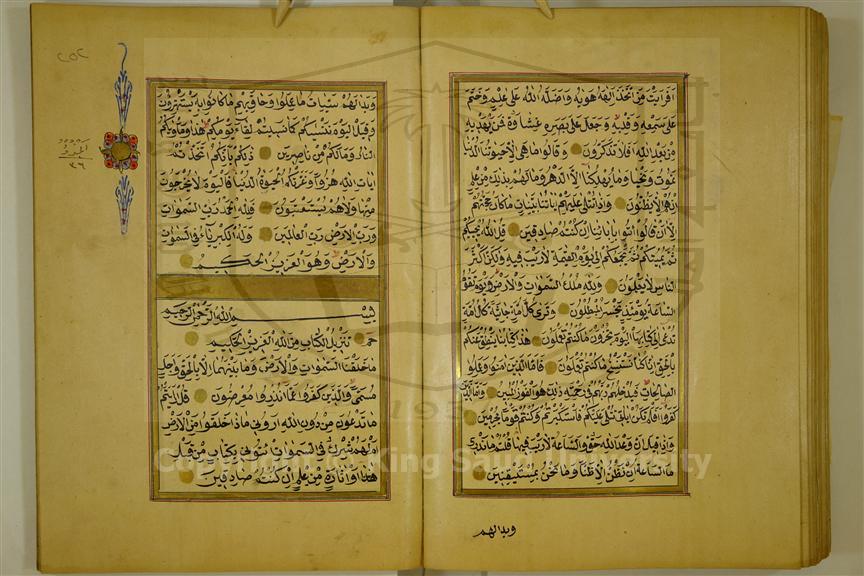 افرايت من اتخذ الهه هويه واضله الله على علم وختم
على سمعه وقلبه وجعل على بصره غشاوة فمن يهديه
من بعد الله افلا تذكرون وقالوا ما هى الا حيوتنا الدنيا
نموت ونحيا وما يهلكنا الا الدهر وما لهم بذلك من علم
ان هم الا يظنون واذا تتلى عليهم اياتنا بينات ما كان حجتهم
الا ان قالوا ائتوا باباىنا ان كنتم صادقين قل الله يحييكم
ثم يميتكم ثم يجمعكم الى يوم القيمة لا ريب فيه ولكن اكثر
الناس لا يعلمون ولله ملك السموات والارض ويوم تقوم
الساعة يومئذ يخسر المبطلون وترى كل امة جاثية كل امة
تدعى الى كتابها اليوم تجزون ما كنتم تعملون هذا كتابنا ينطق عليكم
بالحق انا كنا نستنسخ ما كنتم تعملون فاما الذين امنوا وعملوا
الصالحات فيدخلهم ربهم فى رحمته ذلك هو الفوز المبين واما الذين
كفروا افلم تكن اياتى تتلى عليكم فاستكبرتم وكنتم قوما مجرمين
واذا قيل ان وعد الله حق والساعة لا ريب فيها قلتم ما ندرى
ما الساعة ان نظن الا ظنا وما نحن بمستيقنين
وبدالهم
٢٥٢
الجزؤ
٢٦
وبدا لهم سيئات ما عملوا وحاق بهم ما كانوا به يستهزؤن
وقيل اليوم ننسيكم كما نسيتم لقاء يومكم هذا وماويكم
النار وما لكم من ناصرين ذلكم بانكم اتخذتم
ايات الله هزوا وغرتكم الحيوة الدنيا فاليوم لا يخرجون
منها ولا هم يستعتبون فلله الحمد رب السموات
ورب الارض رب العالمين وله الكبرياء فى السموات
والارض وهو العزيز الحكيم
بسم الله الرحمن الرحيم
حم تنزيل الكتاب من الله العزيز الحكيم
ما خلقنا السموات والارض وما بينهما الا بالحق واجل
مسمى والذين كفروا عما انذروا معرضون قل ارايتم
ما تدعون من دون الله ارونى ماذا خلقوا من الارض
ام لهم شرك فى السموات ائتونى بكتاب من قبل
هذا او اثارة من علم ان كنتم صادقين
King Saud University